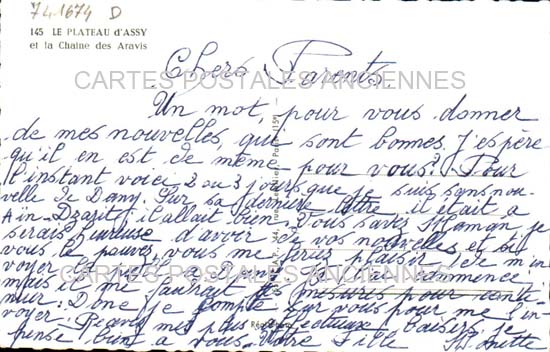 74.1674 D
145 LE PLATEAU d'ASSY
et la Chaine des Aravis
Chers Parents
CARTES POSTALES ANCIENNES
Un mot, pour vous donner
de mes nouvelles, qui sont bonnes. J'espère
qu'il en est de même pour vous? Pour
l'instant voici 2 ou 3 jours que je suis sans nou
velle de Dany. Sur sa dernière lettre il était a
Ain-Dzarit, il allait bien. Vous savez Maman, je
serais heureuse d'avoir de vos nouvelles et si
vous le pouvez, vous me feriez plaisir de m'en
voyer
CARTES POSTALES ANCIENNES
commencé
mais il me faudrait les mesures pour conti
nuer. Donc je compte sur vous pour me l'en
voyer. Recevez mes plus affectueux baisers. Je
pense bien a vous. Votre fille